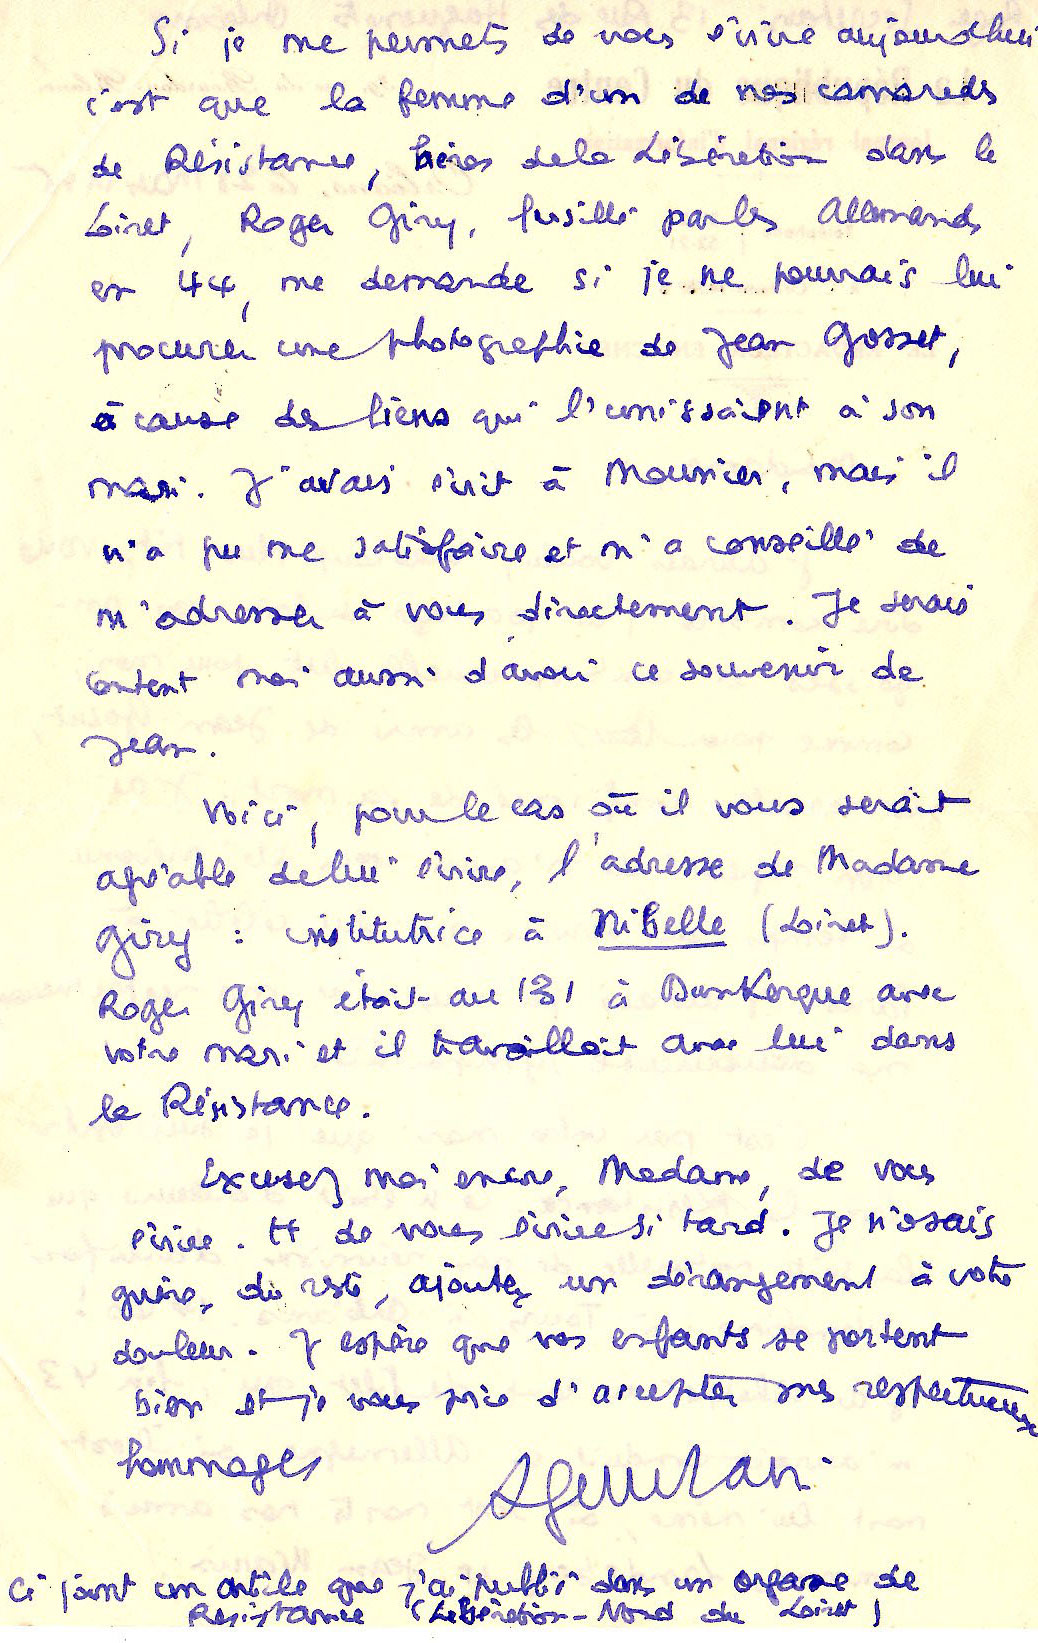 Si je me permets de vous écrire aujourd'hui
c'est que la femme d'un de nos camarades
de Résistance, héros de la Libération dans le
Loiret, Roger Giry, fusillé par les Allemands
en 44, me demande si je ne pourrais lui
procurer une photographie de Jean Gosset,
à cause des liens qui l'unissaient à son
mari. J'avais écrit à Mounier, mais il
n'a pu me satisfaire et m'a conseillé de
m'adresser à vous directement. Je serais
content moi aussi d'avoir ce souvenir de
Jean.
Voici, pour le cas où il vous serait
agréable de lui écrire, l'adresse de Madame
Giry : institutrice à Nibelle (Loiret).
Roger Giry était au 131 à Dunkerque avec
votre mari et il travaillait avec lui dans
la Résistance.
Excusez moi encore, Madame, de vous
écrire. Et de vous écrire si tard. Je n'osais
guère, du reste, ajouter un dérangement à votre
douleur. J'espère que vos enfants se portent
bien et je vous prie d'accepter mes respectueux
hommages
Ci joint un article que j'ai publié dans un organe de
Résistance (Libération-Nord du Loiret)